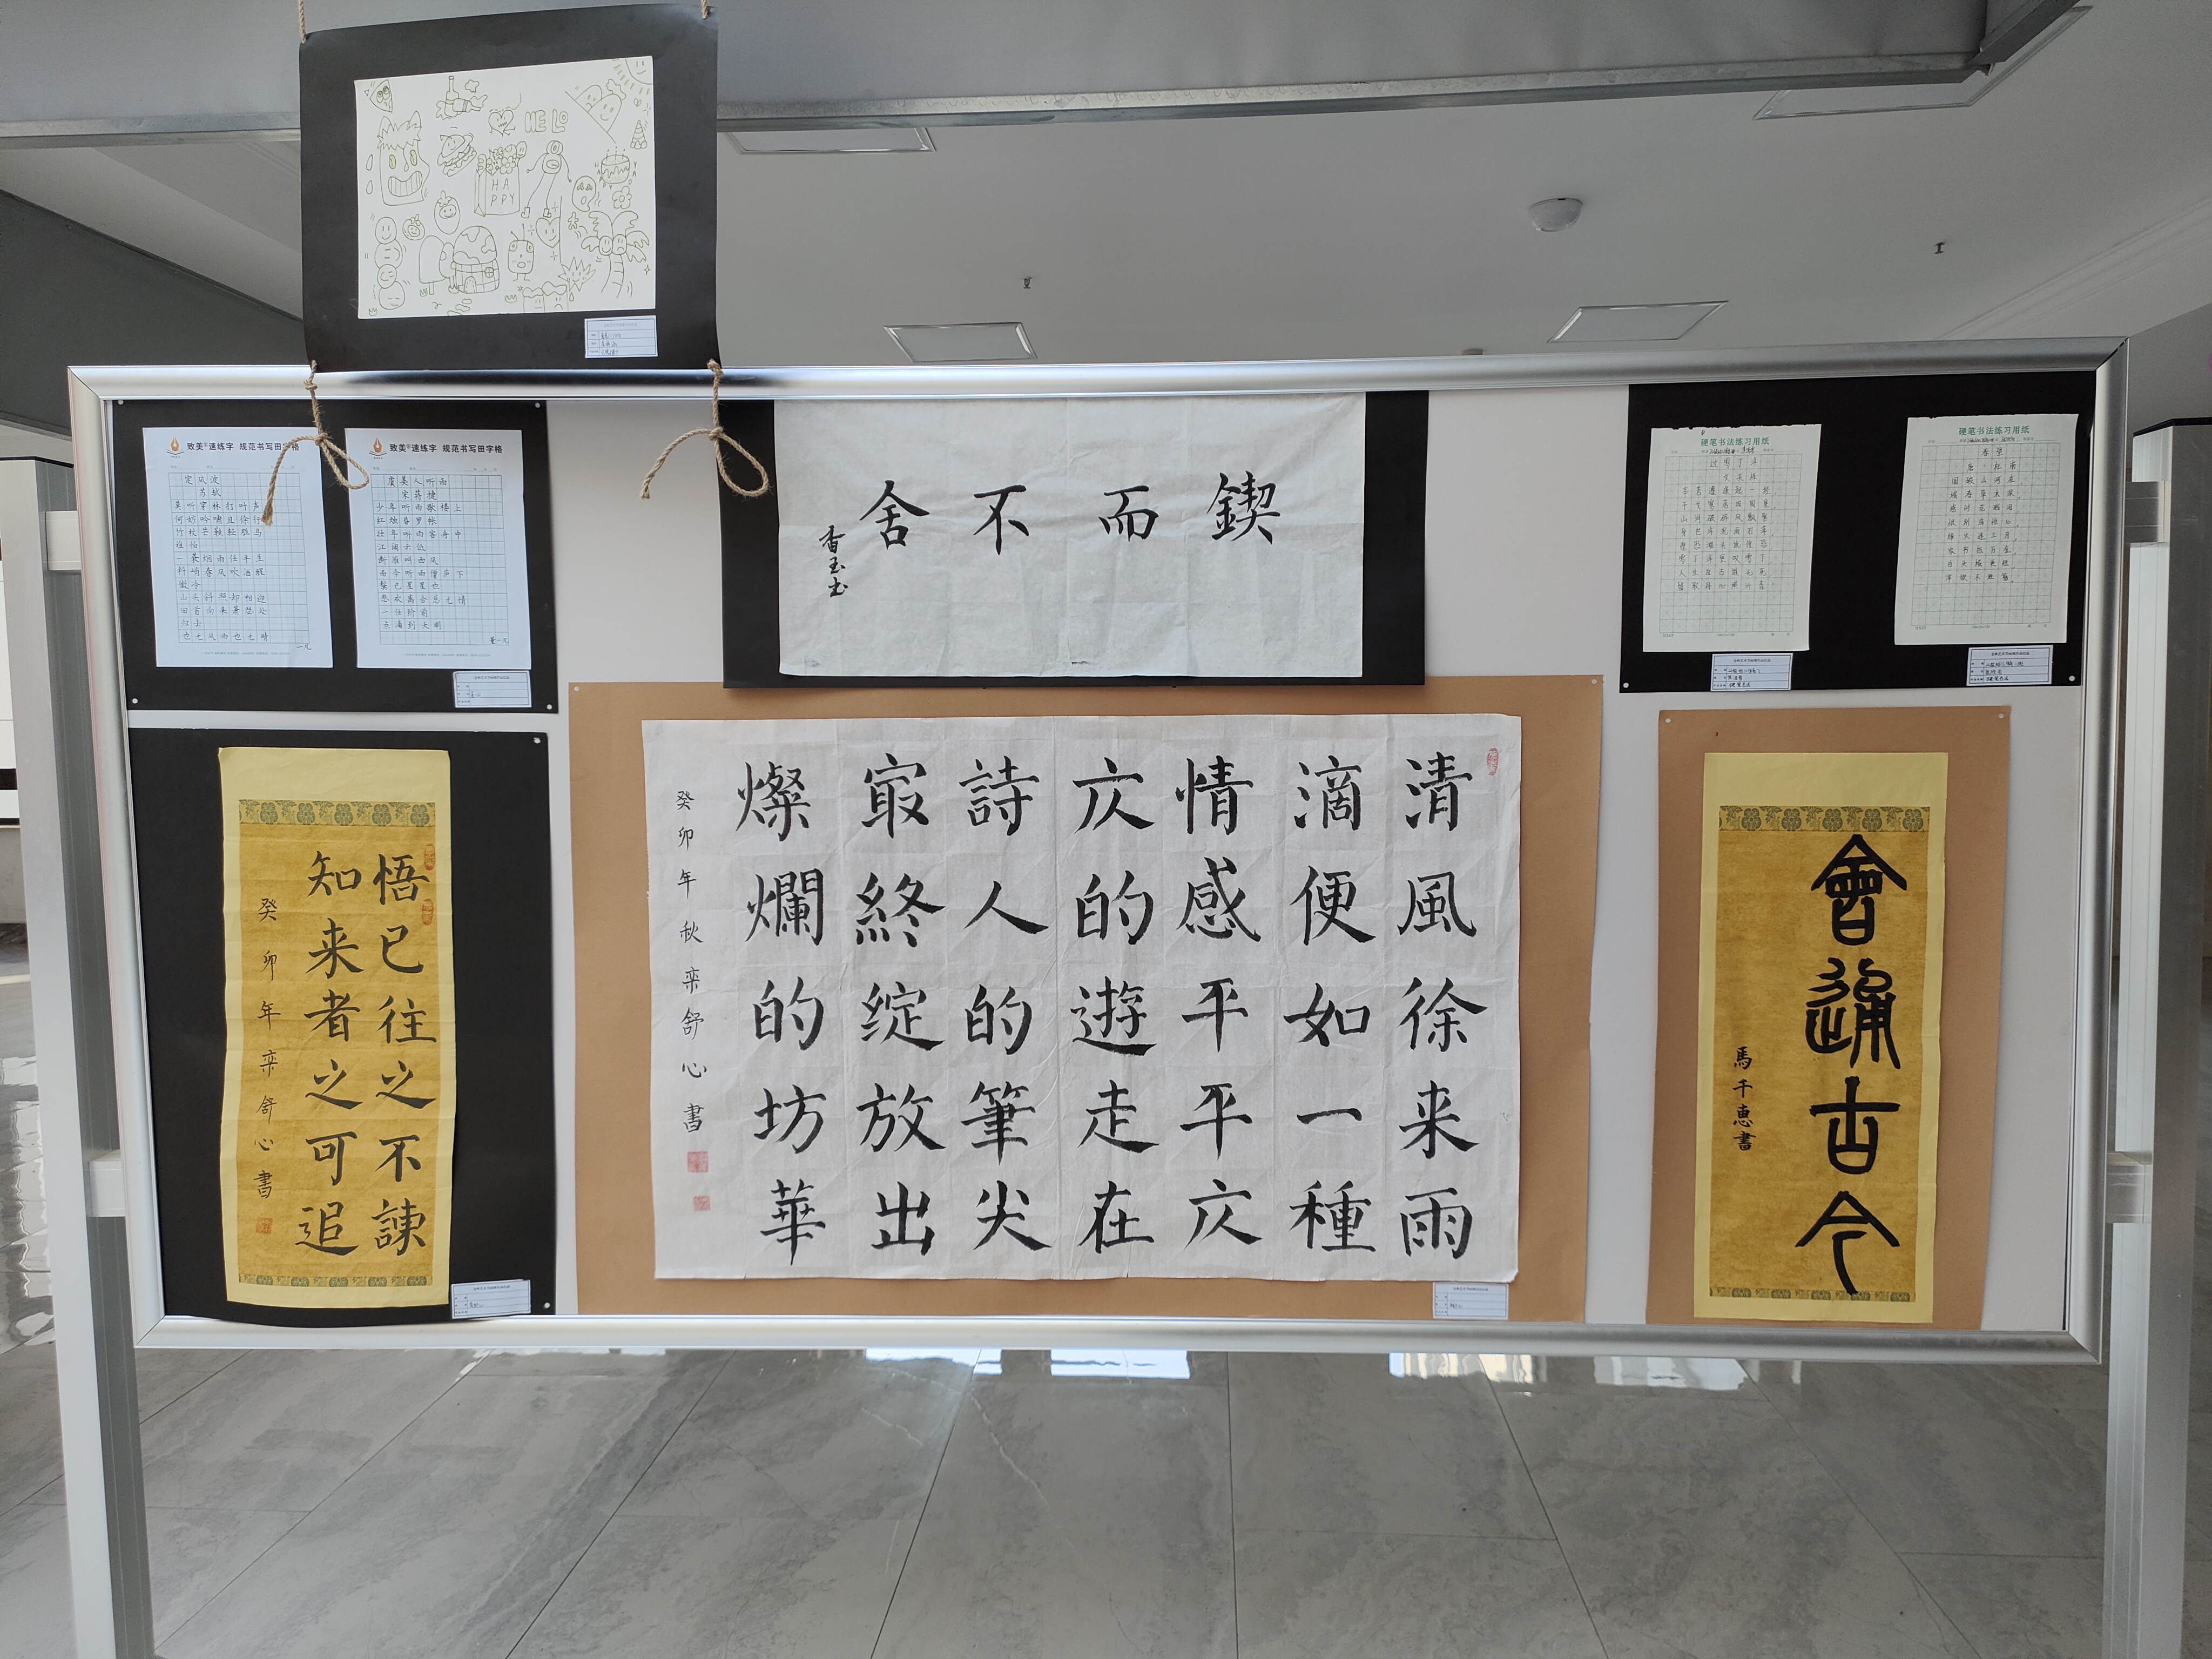 HELO
HA
PPY
致美®速练字 规范书写田字格
定风波
苏轼
莫听穿林打叶声
何妨吟啸且徐行
竹杖芒鞋轻胜马
谁怕
一蓑烟雨任平生
料峭春风吹酒醒
微冷
山头斜照却相迎
回首向来萧瑟处
归去
也无风雨也无晴
致美®速练字 规范书写田字格
虞美人听雨
宋蒋捷
少年听雨歌楼上
红烛昏罗帐
壮年听雨客舟中
江阔云低
断雁叫西风
而今听雨僧庐下
鬓已星星也
悲欢离合总无情
一任阶前
点滴到天明
鍥而不舍
香玉书
硬笔书法练习用纸
过零丁洋
文天祥
辛苦遭逢起一经
干戈寥落四周星
山河破碎风飘絮
身世浮沉雨打萍
惶恐滩头说惶恐
零丁洋里叹零丁
人生自古谁无死
留取丹心照汗青
硬笔书法练习用纸
春望
唐·杜甫
国破山河在
城春草木深
感时花溅泪
恨别鸟惊心
烽火连三月
家书抵万金
白头搔更短
浑欲不胜簪
悟已往之不諫
知来者之可追
癸卯年栾舒心書
清風徐来雨
滴便如一種
情感平平仄
仄的遊走在
詩人的筆尖
寂終綻放出
燦爛的芳華
癸卯年秋栾舒心書
會通古今
馬千惠書